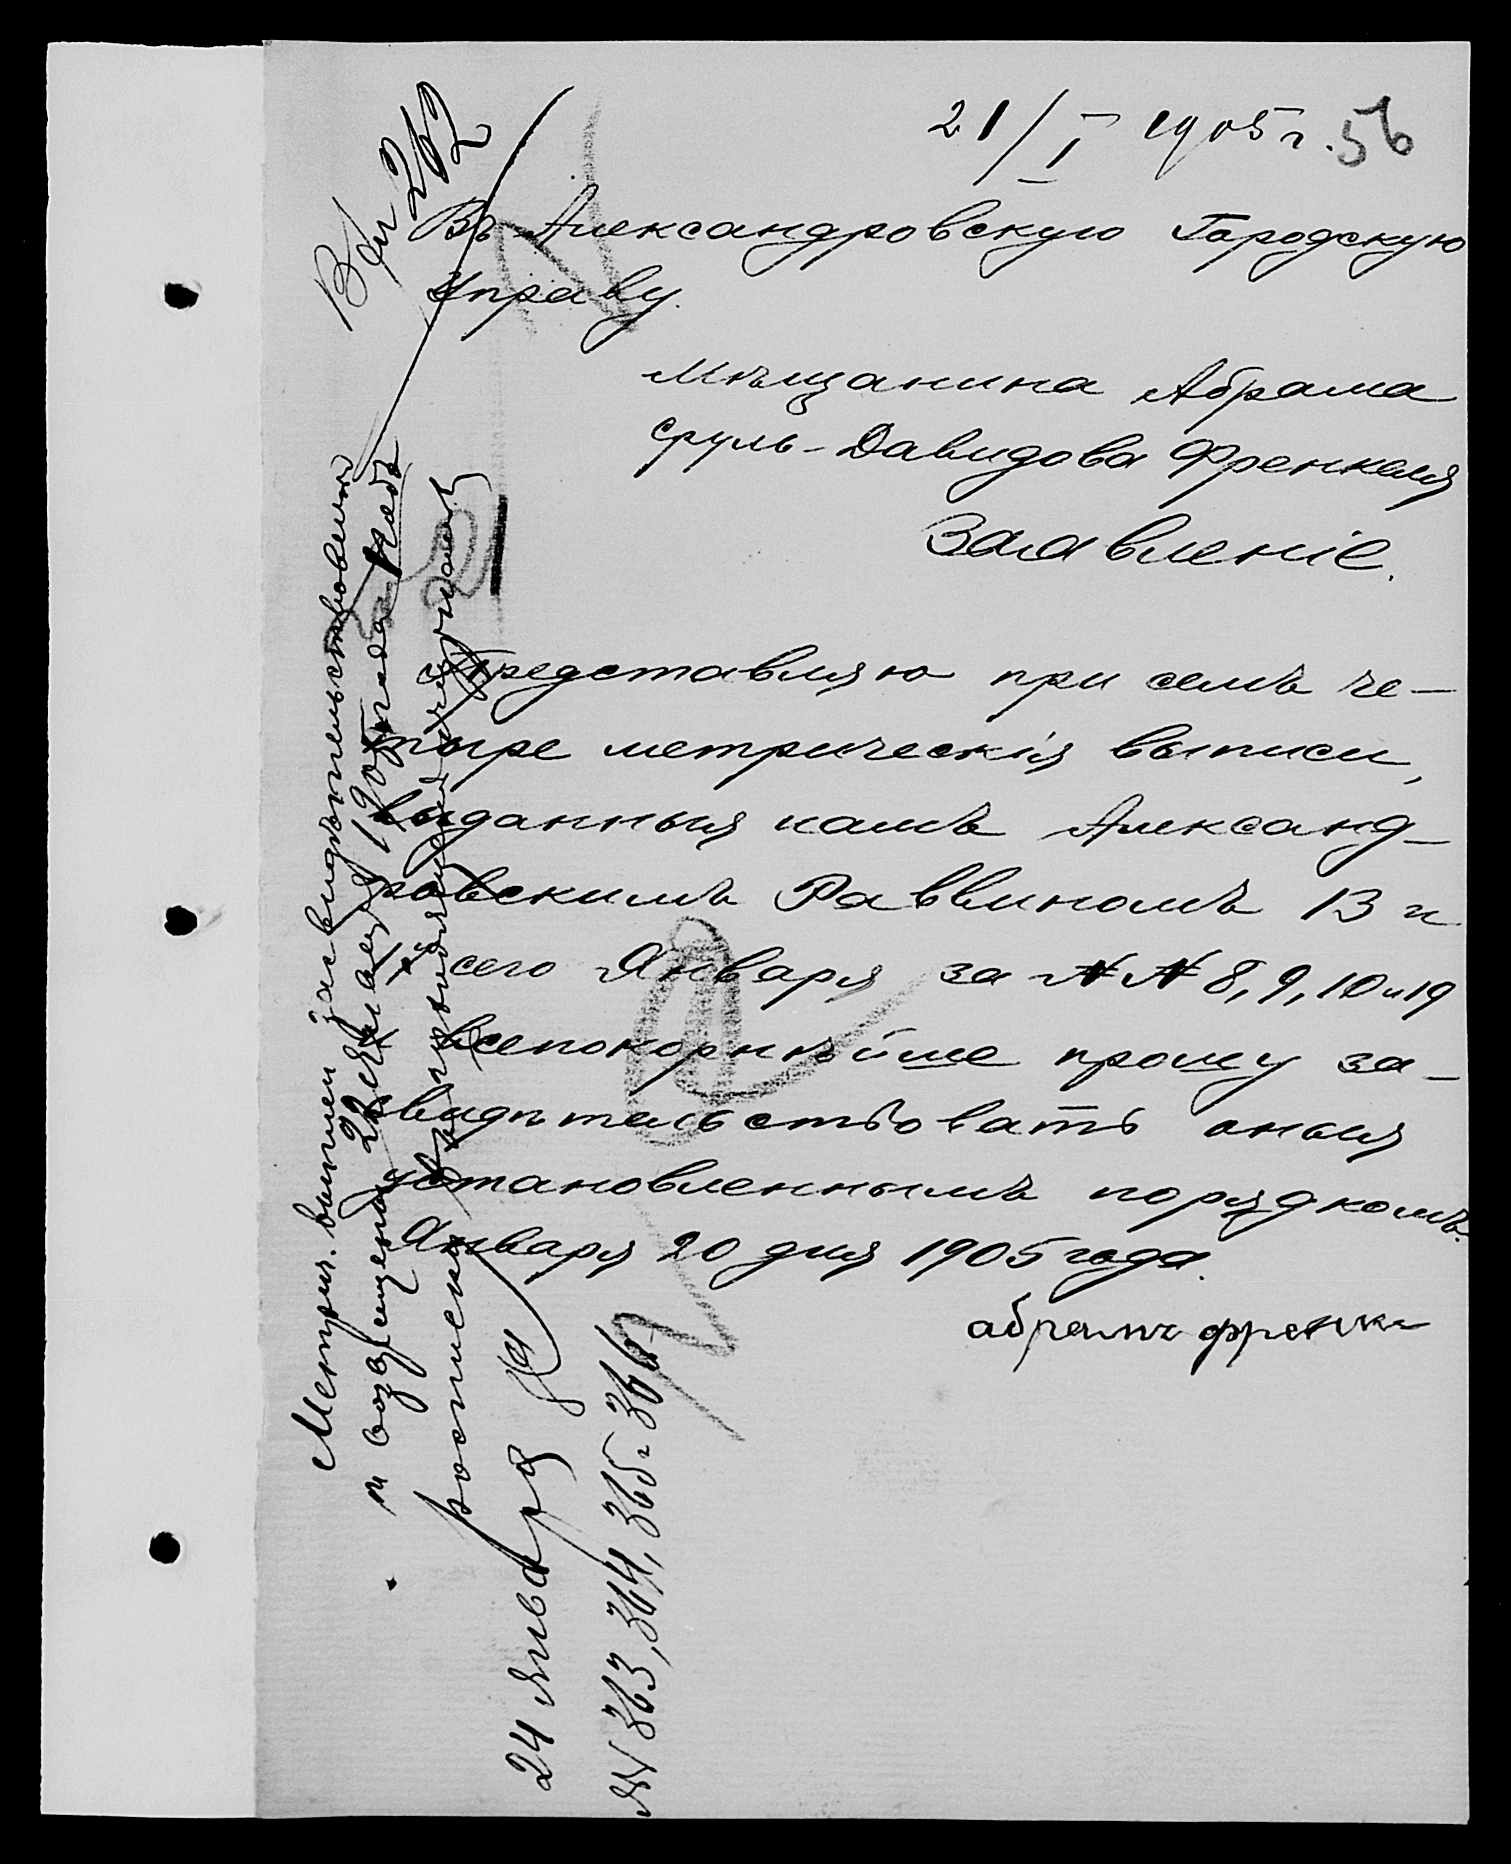 21/I 1905 г. 56
Вх 262
Въ Александровскую Городскую
Управу.
Мѣщанина Абрама
Сруль-Давидова Френкеля
Заявленіе.
Представляю при семъ че-
тыре метрическія выписи,
выданныя намъ Александ-
ровскимъ Раввиномъ 13 и
сего Января за №№ 8, 9, 10 и 19
всепокорнѣйше прошу за-
видѣтельствовать оныя
установленнымъ порядкомъ.
Января 20 дня 1905 года.
абрамъ френк
Метрич. выписи засвидѣтельствованы
и возвращены 22 Января 1905 года подъ
росписку
24 Января
№ 363, 364, 365 и 366